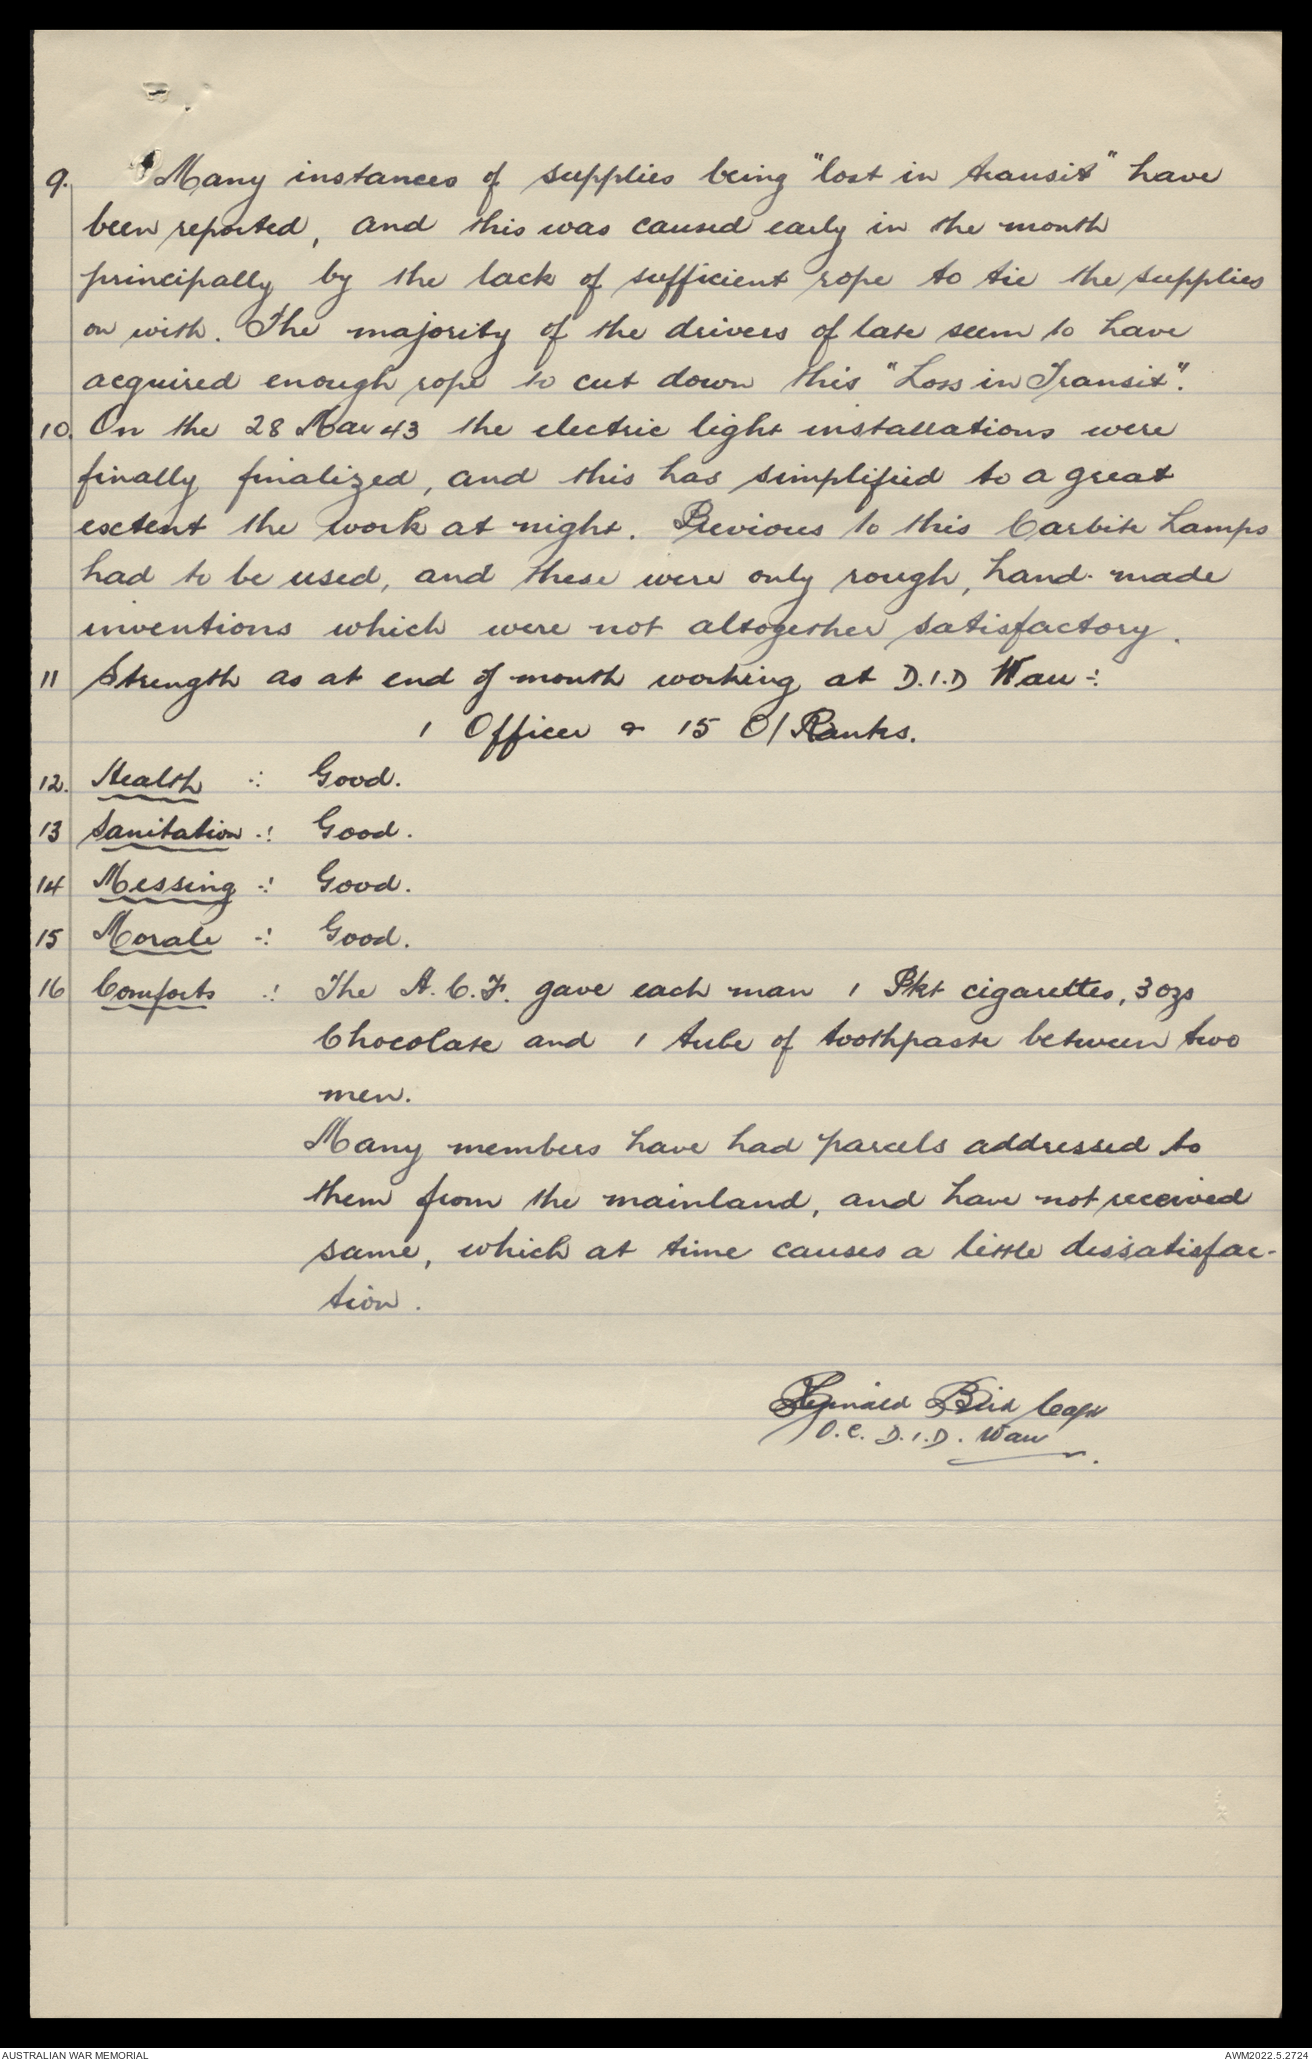 9. Many instances of supplies being "lost in transit" have
been reported, and this was caused early in the month
principally by the lack of sufficient rope to tie the supplies
on with. The majority of the drivers of late seem to have
acquired enough rope to cut down this "Loss in Transit".
10. On the 28 Mar 43 the electric light installations were
finally finalized, and this has simplified to a great
exctent the work at night. Previous to this Carbite Lamps
had to be used, and these were only rough, hand-made
inventions which were not altogether satisfactory.
11 Strength as at end of month working at D.I.D Wau -:
1 Officer & 15 O/Ranks.
12. Health -: Good.
13 Sanitation -: Good.
14 Messing -: Good.
15 Morale -: Good.
16 Comforts -: The A.C.F. gave each man 1 Pkt cigarettes, 3 ozs
Chocolate and 1 tube of toothpaste between two
men.
Many members have had parcels addressed to
them from the mainland, and have not received
same, which at time causes a little dissatisfac-
tion.
Bird Capt
O.C. D.I.D. Wau
AUSTRALIAN WAR MEMORIAL
AWM2022.5.2724